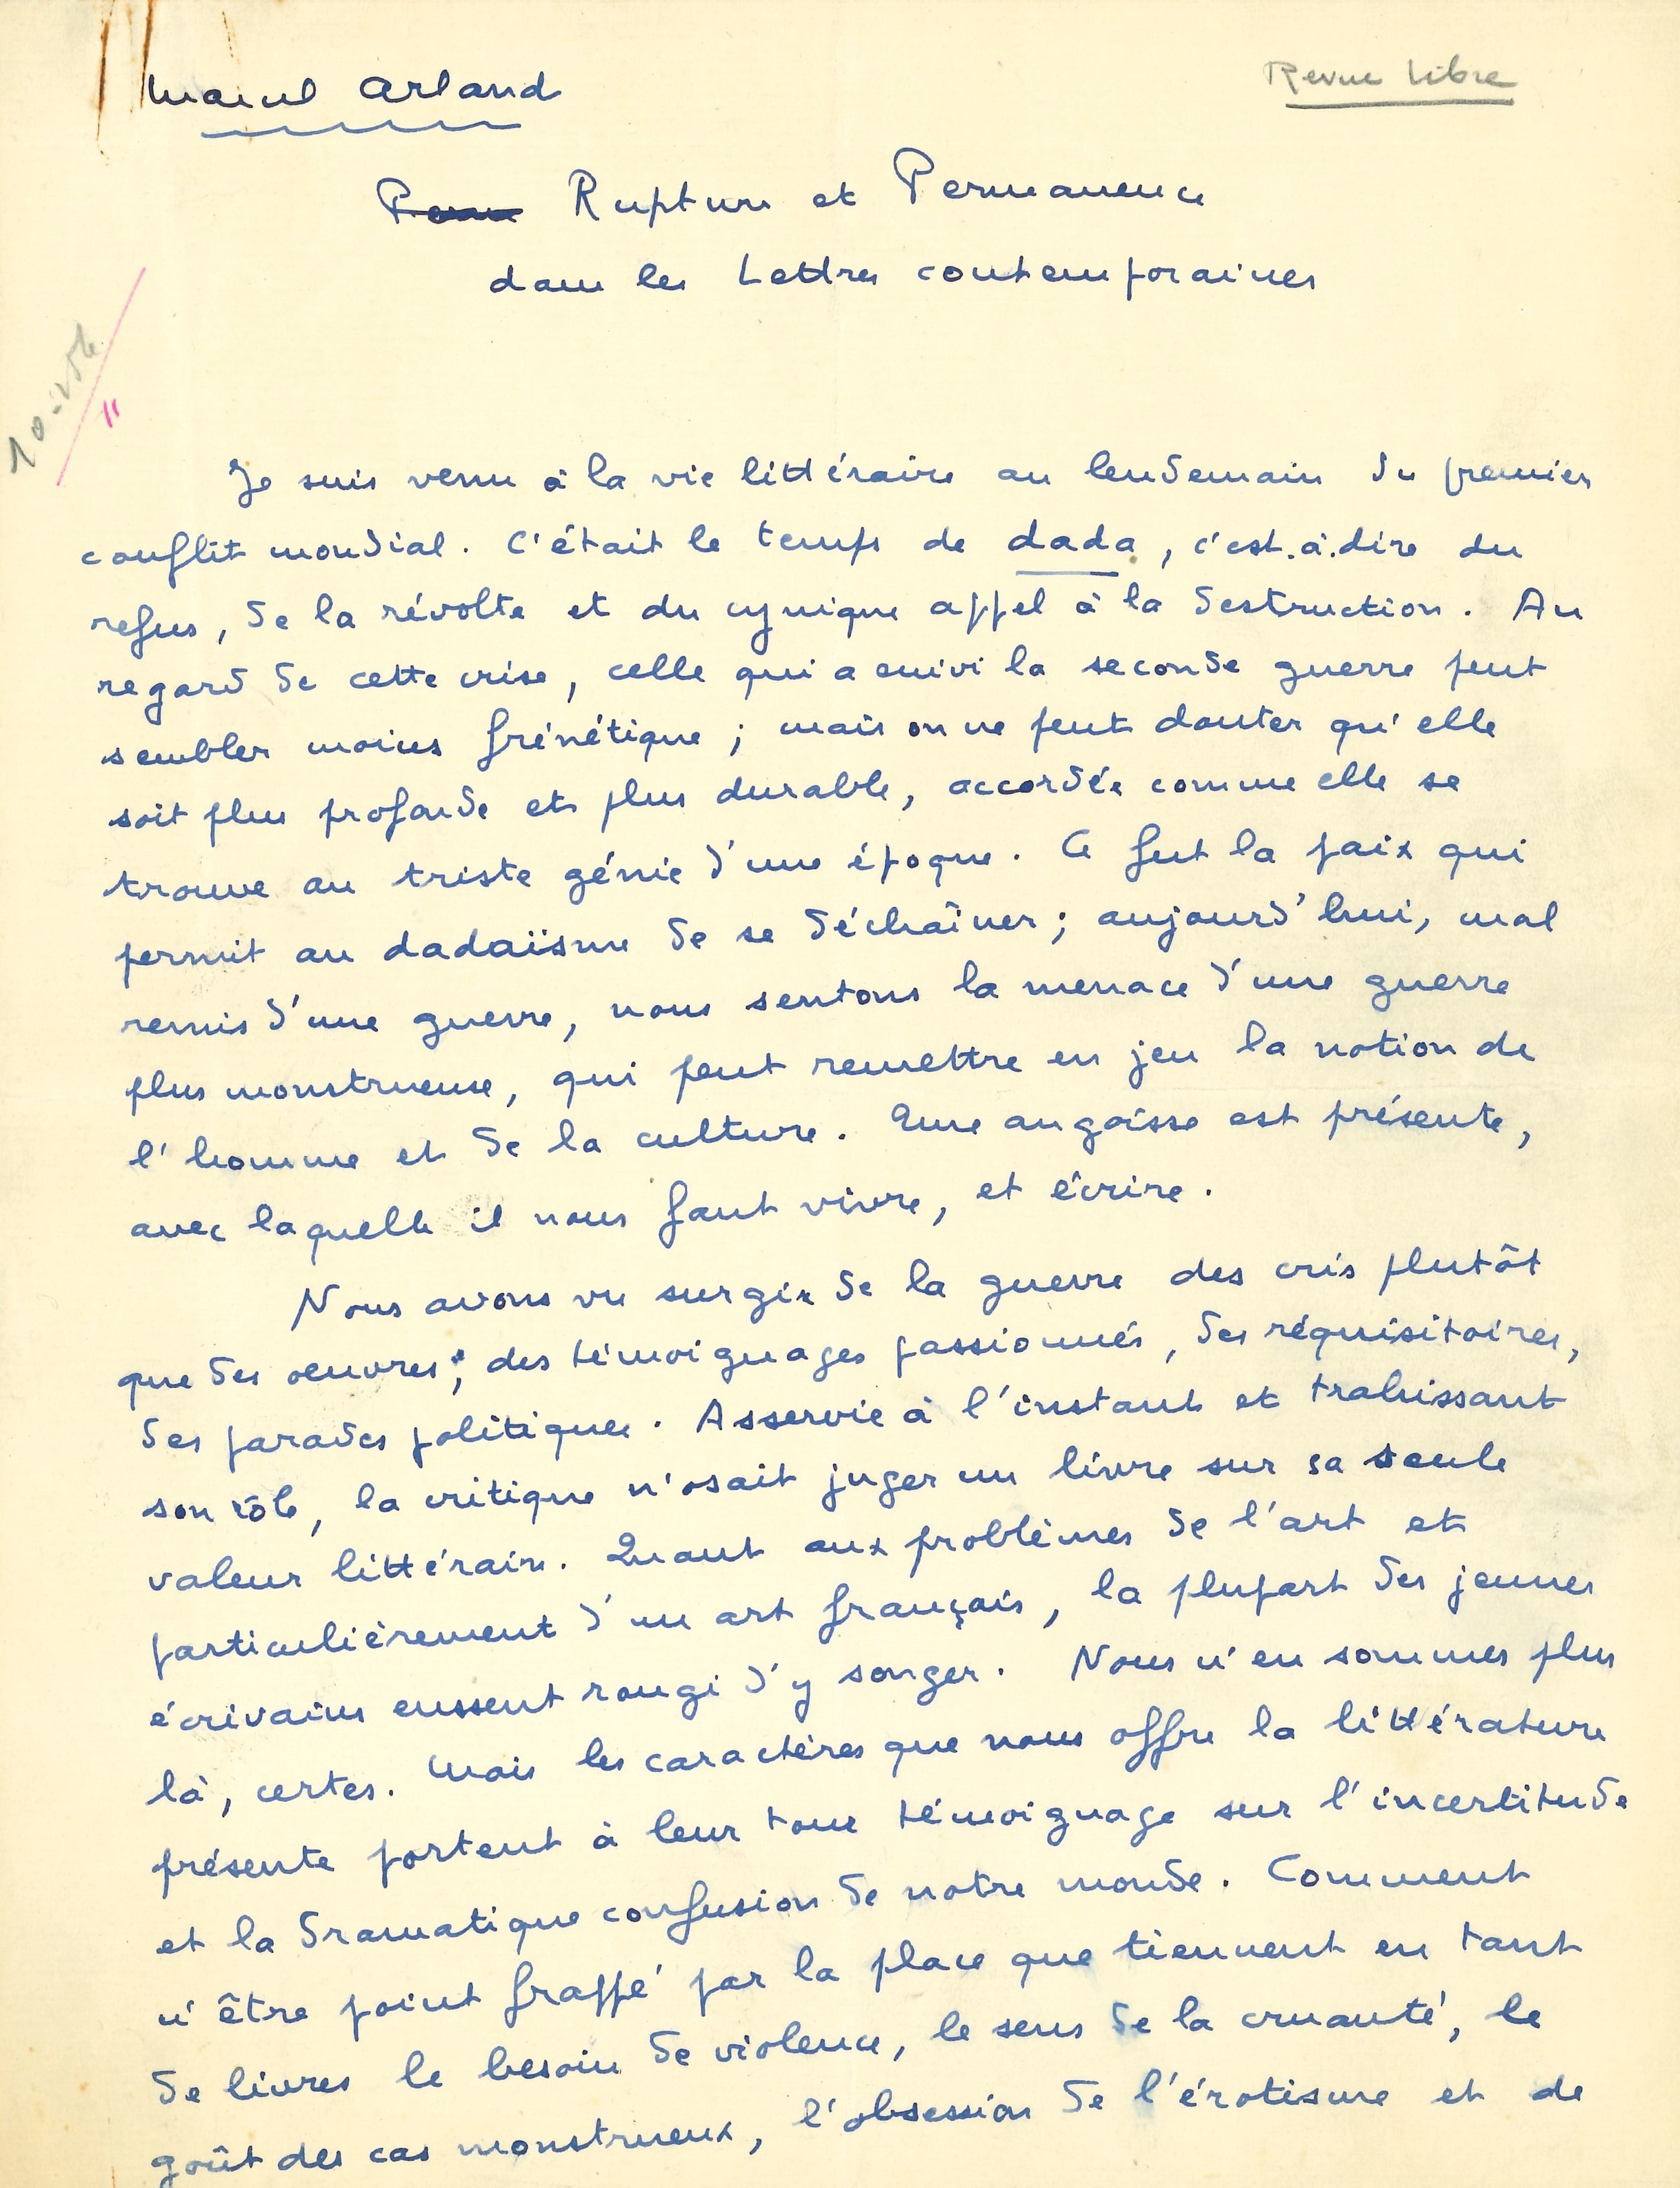 Marcel Arland
Revue Libre
Rupture et Permanence
dans les Lettres contemporaines
Je suis venu à la vie littéraire au lendemain du premier
conflit mondial. C'était le temps de dada, c'est.à.dire du
refus, de la révolte et du cynique appel à la destruction. Au
regard de cette crise, celle qui a suivi la seconde guerre peut
sembler moins frénétique ; mais on ne peut douter qu'elle
soit plus profonde et plus durable, accordée comme elle se
trouve au triste génie d'une époque. Ce fut la paix qui
permit au dadaïsme de se déchaîner ; aujourd'hui, mal
remis d'une guerre, nous sentons la menace d'une guerre
plus monstrueuse, qui peut remettre en jeu la notion de
l'homme et de la culture. Une angoisse est présente,
avec laquelle il nous faut vivre, et écrire.
Nous avons vu surgir de la guerre des cris plutôt
que des oeuvres ; des témoignages passionnés, des réquisitoires,
des parades politiques. Asservie à l'instant et trahissant
son rôle, la critique n'osait juger un livre sur sa seule
valeur littéraire. Quant aux problèmes de l'art et
particulièrement d'un art français, la plupart des jeunes
écrivains eussent rougi d'y songer. Nous n'en sommes plus
là, certes. Mais les caractères que nous offre la littérature
présente portent à leur tour témoignage sur l'incertitude
et la dramatique confusion de notre monde. Comment
n'être point frappé par la place que tiennent en tant
de livres le besoin de violence, le sens de la cruauté, le
goût des cas monstrueux, l'obsession de l'érotisme et de